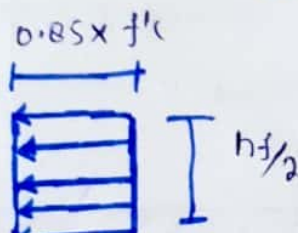 0.85x f'c
hf/2